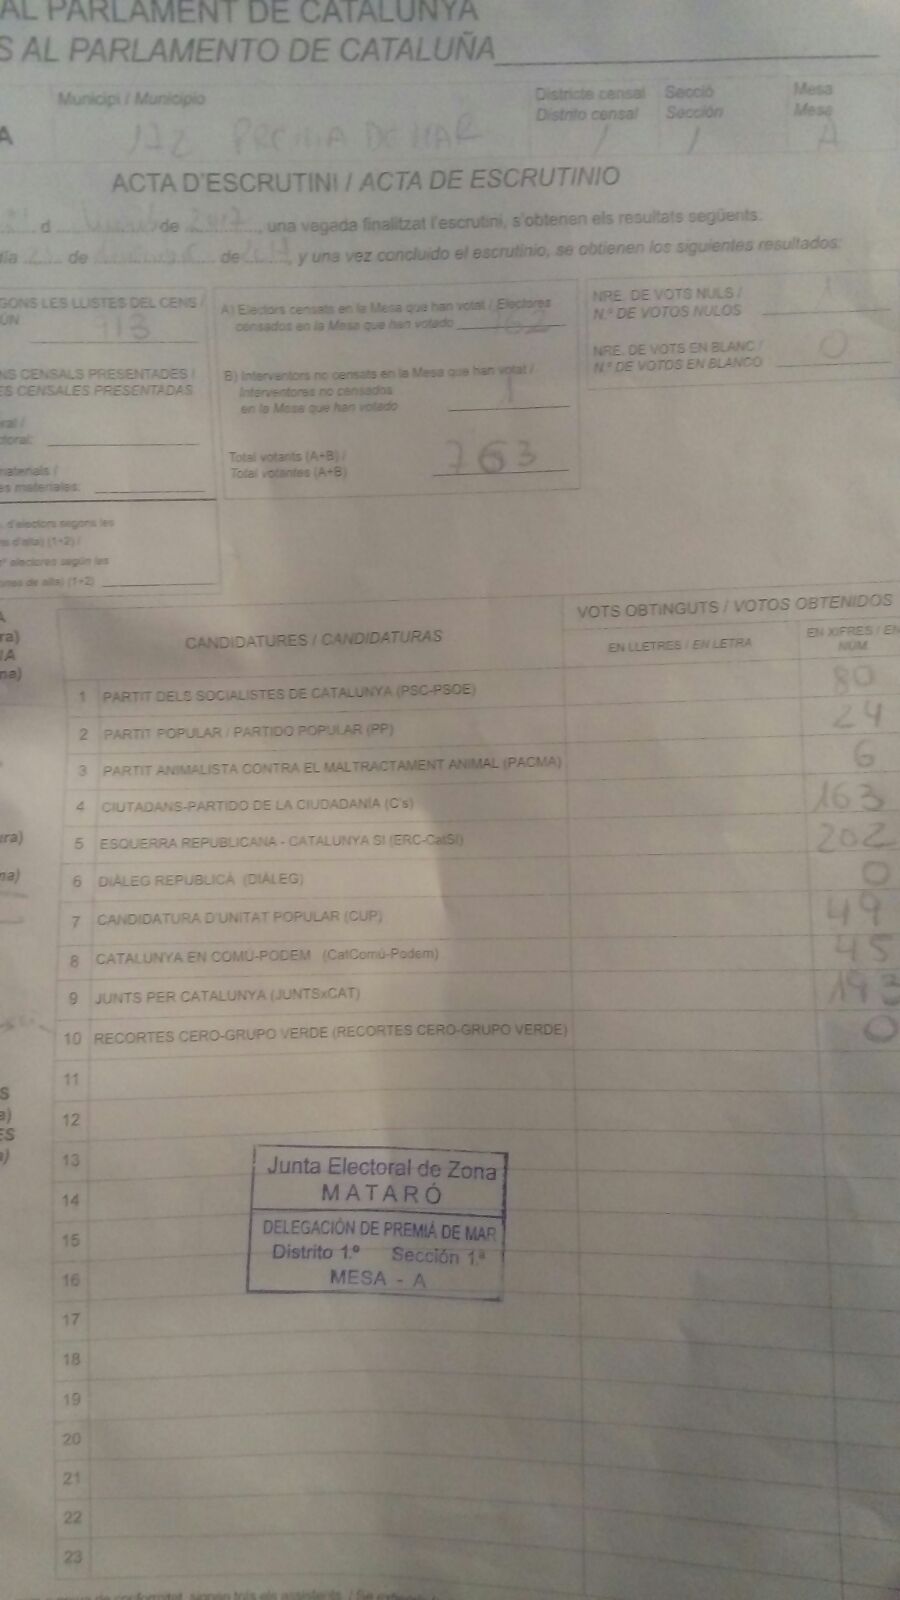 AL PARLAMENT DE CATALUNYA
S AL PARLAMENTO DE CATALUÑA
Municipi / Municipio
Districte censal
Distrito censal
Secció
Sección
Mesa
Mesa
A
PREMIA DE MAR
1
1
A
ACTA D'ESCRUTINI / ACTA DE ESCRUTINIO
d de 2017, una vegada finalitzat l'escrutini, s'obtenen els resultats següents:
día de de 2017, y una vez concluido el escrutinio, se obtienen los siguientes resultados:
GONS LES LLISTES DEL CENS /
ÚN
913
NS CENSALS PRESENTADES /
ES CENSALES PRESENTADAS
ral /
ctoral:
materials /
es materiales:
. d'electors segons les
ns d'alta) (1+2) /
nº electores según las
iones de alta) (1+2)
A) Electors censats en la Mesa que han votat / Electores
censados en la Mesa que han votado 762
B) Interventors no censats en la Mesa que han votat /
Interventores no censados
en la Mesa que han votado 1
Total votants (A+B) /
Total votantes (A+B) 763
NRE. DE VOTS NULS /
N.º DE VOTOS NULOS 1
NRE. DE VOTS EN BLANC /
N.º DE VOTOS EN BLANCO 0
CANDIDATURES / CANDIDATURAS
VOTS OBTINGUTS / VOTOS OBTENIDOS
EN LLETRES / EN LETRA
EN XIFRES / EN
NÚM
1 PARTIT DELS SOCIALISTES DE CATALUNYA (PSC-PSOE) 80
2 PARTIT POPULAR / PARTIDO POPULAR (PP) 24
3 PARTIT ANIMALISTA CONTRA EL MALTRACTAMENT ANIMAL (PACMA) 6
4 CIUTADANS-PARTIDO DE LA CIUDADANÍA (C's) 163
5 ESQUERRA REPUBLICANA - CATALUNYA SÍ (ERC-CatSí) 202
6 DIÀLEG REPUBLICÀ (DIÀLEG) 0
7 CANDIDATURA D'UNITAT POPULAR (CUP) 49
8 CATALUNYA EN COMÚ-PODEM (CatComú-Podem) 45
9 JUNTS PER CATALUNYA (JUNTSxCAT) 193
10 RECORTES CERO-GRUPO VERDE (RECORTES CERO-GRUPO VERDE) 0
11
12
13
14
15
16
17
18
19
20
21
22
23
Junta Electoral de Zona
MATARÓ
DELEGACIÓN DE PREMIÁ DE MAR
Distrito 1.º Sección 1.ª
MESA - A